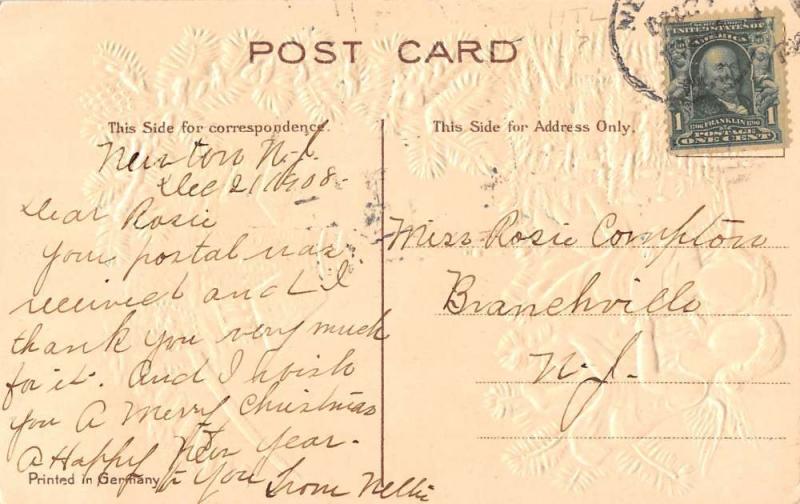 POST CARD
This Side for correspondence.
Newton N.J.
Dec 21 1908.
Dear Rosie
Your postal was
received and I
thank you very much
for it. And I wish
you A Merry Christmas
&
A Happy New Year.
to You from Nellie
Printed in Germany
This Side for Address Only.
Miss Rosie Compton
Branchville
N.J.
UNITED STATES OF
AMERICA
1 1
1706 FRANKLIN 1790
POSTAGE
ONE CENT